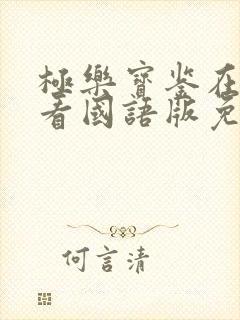 極樂寶鉴在
看國語版免
何言清